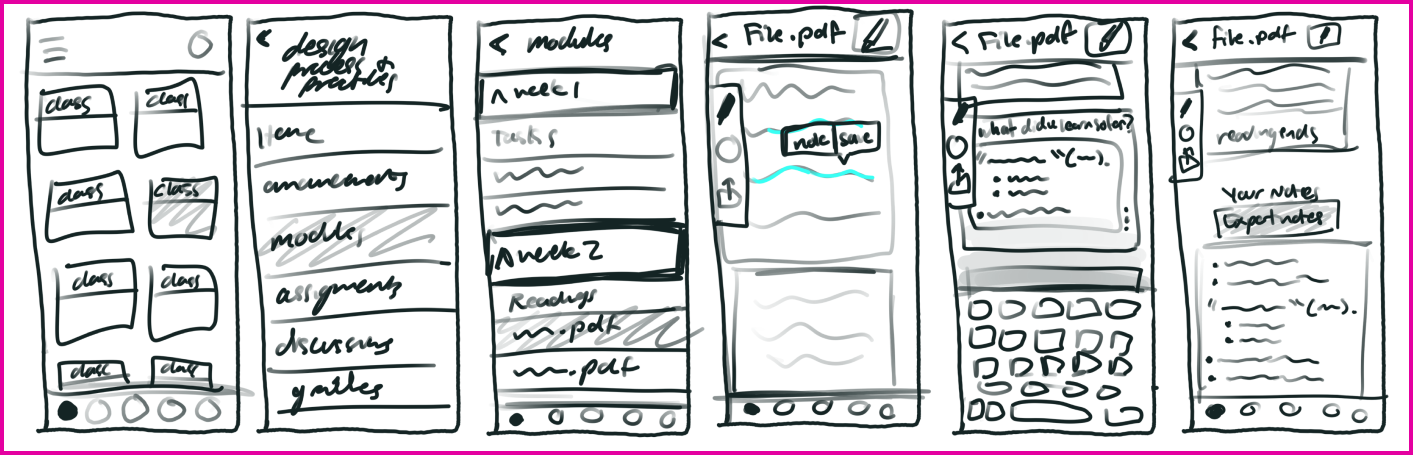 class class
class class
class class
class class
design
process &
practices
Home
announcements
modules
assignments
discussions
modules
week 1
Tasks
week 2
Readings
.pdf
.pdf
File.pdf
note save
File.pdf
what did u learn so far?
File.pdf
reading ends
Your Notes
Export notes